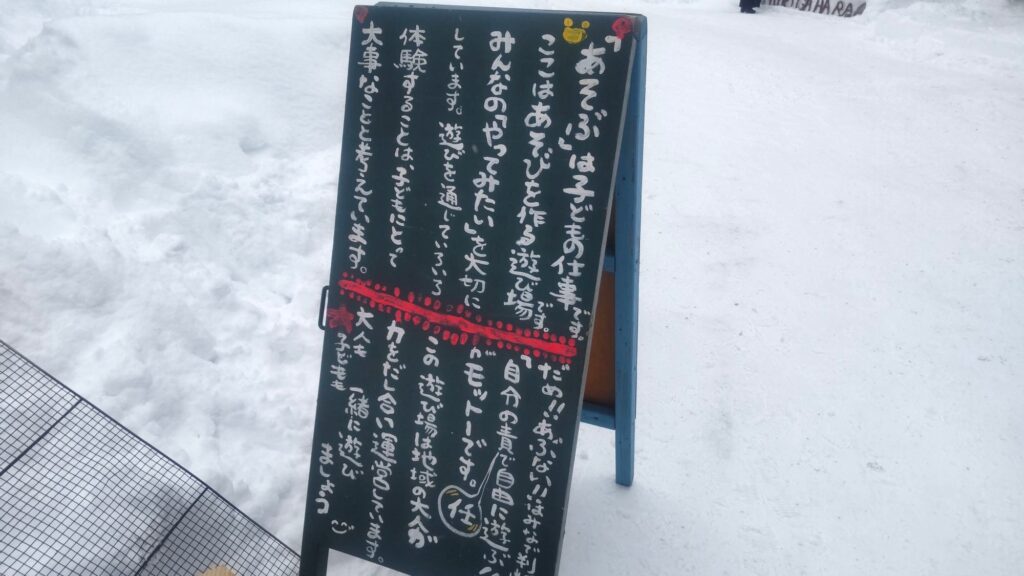 「あそぶ」は子どもの仕事です。
ここはあそびを作る遊び場です。
みんなの「やってみたい」を大切に
しています。遊びを通じていろいろ
体験することは子どもにとって
大事なことと考えています。
だめ!!あぶない!!は
「自分の責任で自由に遊ぶ」
がモットーです。
この遊び場は地域の大人が
力をだし合い運営しています。
大人も
子どもも
一緒に遊び
ましょう